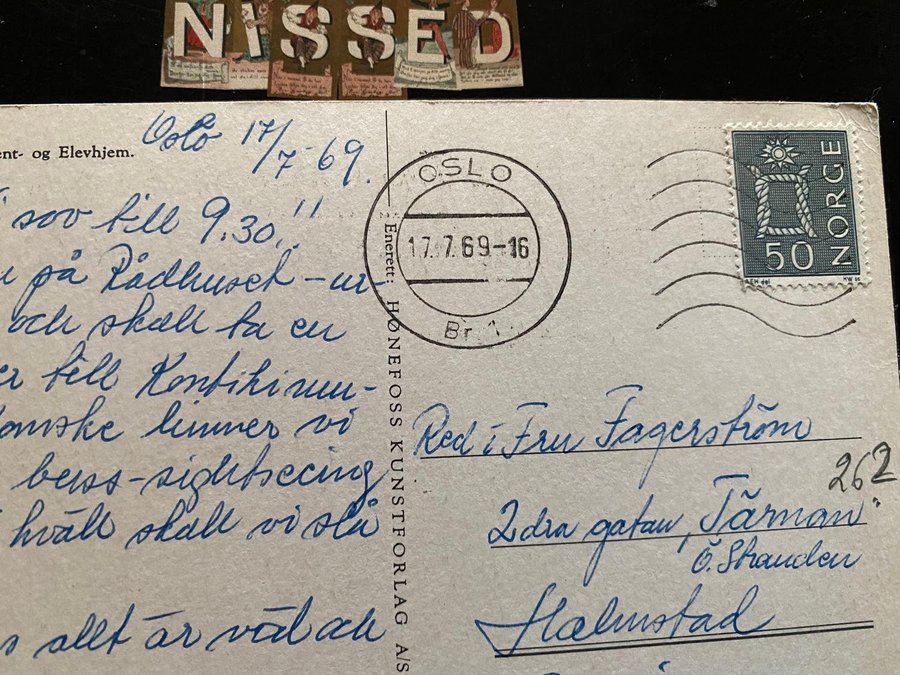 NISSED
ent- og Elevhjem.
Oslo 17/7-69.
sov till 9.30.!!
på Rådhuset -ur-
och skall ta en
till Kontikimu-
kanske hinner vi
buss-sightseeing
kväll skall vi slå
allt är väl och
Enerett: HØNEFOSS KUNSTFORLAG A/S
OSLO
17.7.69-16
Br. 1
NORGE
50
Red. i Fru Fagerström
2dra gatan, "Tärnan"
Ö. Stranden
Halmstad
262